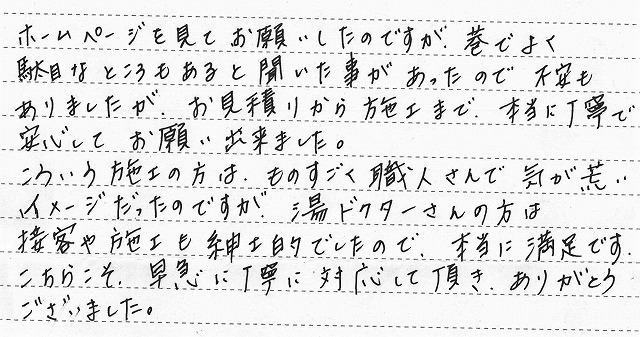 ホームページを見てお願いしたのですが、巷でよく
駄目なところもあると聞いた事があったので不安も
ありましたが、お見積りから施工まで、本当に丁寧で
安心してお願い出来ました。
こういう施工の方は、ものすごく職人さんで気が荒い
イメージだったのですが、湯ドクターさんの方は
接客や施工も紳士的でしたので、本当に満足です。
こちらこそ、早急に丁寧に対応して頂き、ありがとう
ございました。